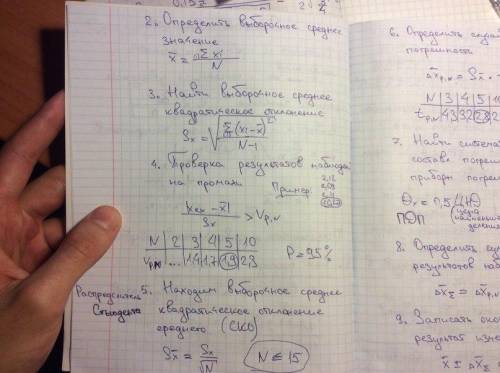 2. Определить выборочное среднее
значение
x̄ = Σ xᵢ / N
3. Найти выборочное среднее
квадратическое отклонение
Sₓ = √(Σ (xᵢ - x̄)² / N-1)
4. Проверка результатов наблюд
на промахи
Пример:
|x - x̄| / Sₓ > V_P,N
N | 2 | 3 | 4 | 5 | 10
V_P,N | ... | 1,4 | 1,7 | 1,9 | 2,3
P = 95%
Распределитель
Стьюдента
5. Находим выборочное среднее
квадратическое отклонение
среднего (СКО)
Sx̄ = Sₓ / √N
N ≤ 15
6. Определить случай
погрешность
Δx_P,N = Sx̄ ·
N | 3 | 4 | 5 | 10
t_P,N | 4,3 | 3,2 | 2,8
7. Найти система
состав погреш
прибор погре
Θₓ = 0,5
цена
наименьш
делени
ПОП
8. Определить су
результатов на
Δx̄_Σ = Δx_P,N
9. Записать око
результат изме
x̄ ± Δx̄_Σ =